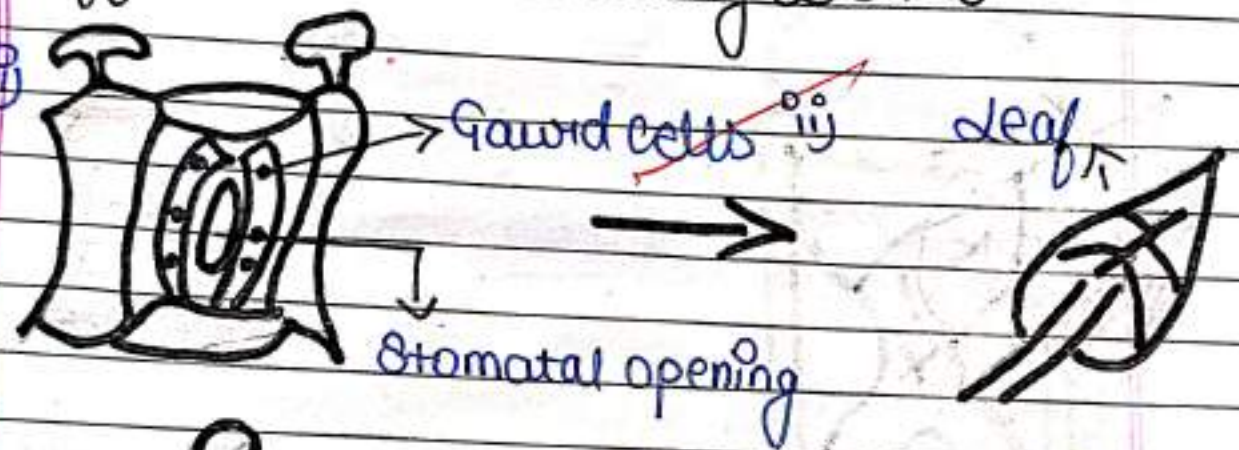 i)
Gaurd cells iii)
Leaf
Stomatal opening